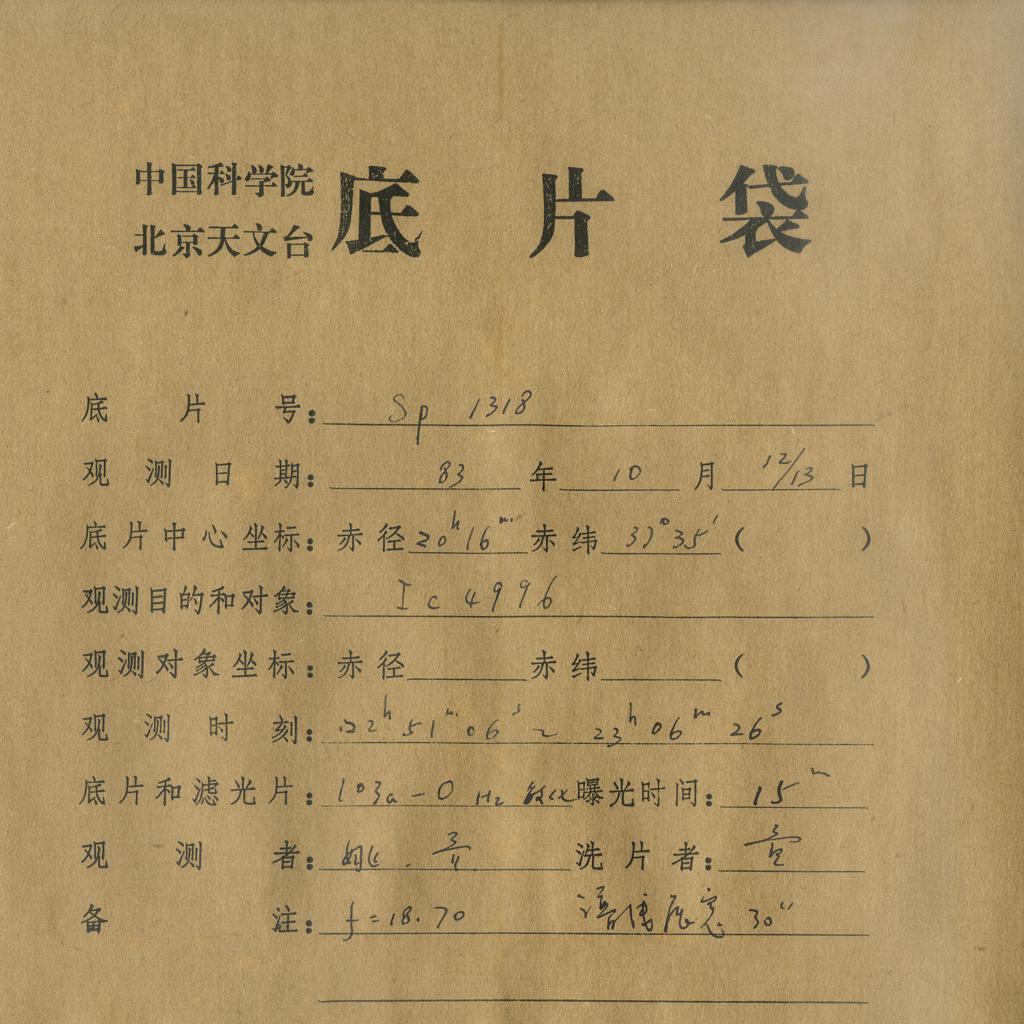 中国科学院
北京天文台
底片袋
底片号: Sp 1318
观测日期: 83 年 10 月 12/13 日
底片中心坐标: 赤径 20h16m 赤纬 37°35' ( )
观测目的和对象: Ic 4996
观测对象坐标: 赤径 赤纬 ( )
观测时刻: 22h 51m 06s ~ 23h 06m 26s
底片和滤光片: 103a-O H2 敏化 曝光时间: 15m
观测者: 姚. 洗片者:
备注: f=18.70 展宽 30"